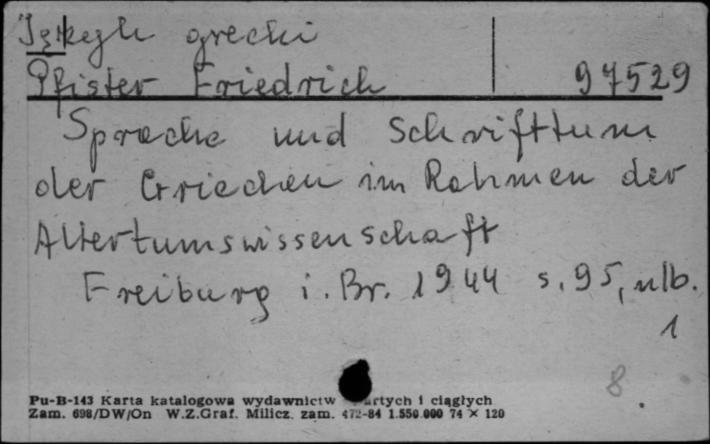 Język grecki
Pfister Friedrich 97529
Sprache und Schrifttum
der Griechen im Rahmen der
Altertumswissenschaft
Freiburg i. Br. 1944 s. 95, nlb.
1
8
Pu-B-143 Karta katalogowa wydawnictw i ciągłych
Zam. 698/DW/On W.Z.Graf. Milicz. zam. 472-84 1.550.000 74 × 120